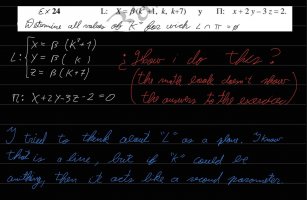 Ex 24 L: X = β (k²+1, k, k+7) y Π: x + 2y − 3z = 2.
Determine all values of "K" for wich L ∩ π = ∅
L: { X = β (k²+1)
Y = β ( k )
Z = β (k+7)
¿How i do this?
(the math book doesn't show
the answers to the exercises)
Π: X+2Y-3Z-2=0
I tried to think about "L" as a plane. I know
that is a line, but if "K" could be
anything, then it acts like a second parameter